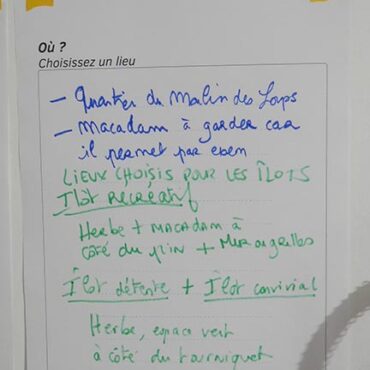 Où ?
Choisissez un lieu
- Quartier du Malin des Loups
- Macadam à garder car
il permet par exem
LIEUX CHOISIS POUR LES ÎLOTS
Ilôt RECRÉATIF
Herbe + MACADAM à
côté du PIN + MUR aiguilles
Îlot détente + Îlot convivial
Herbe, espace vert
à côté du tourniquet